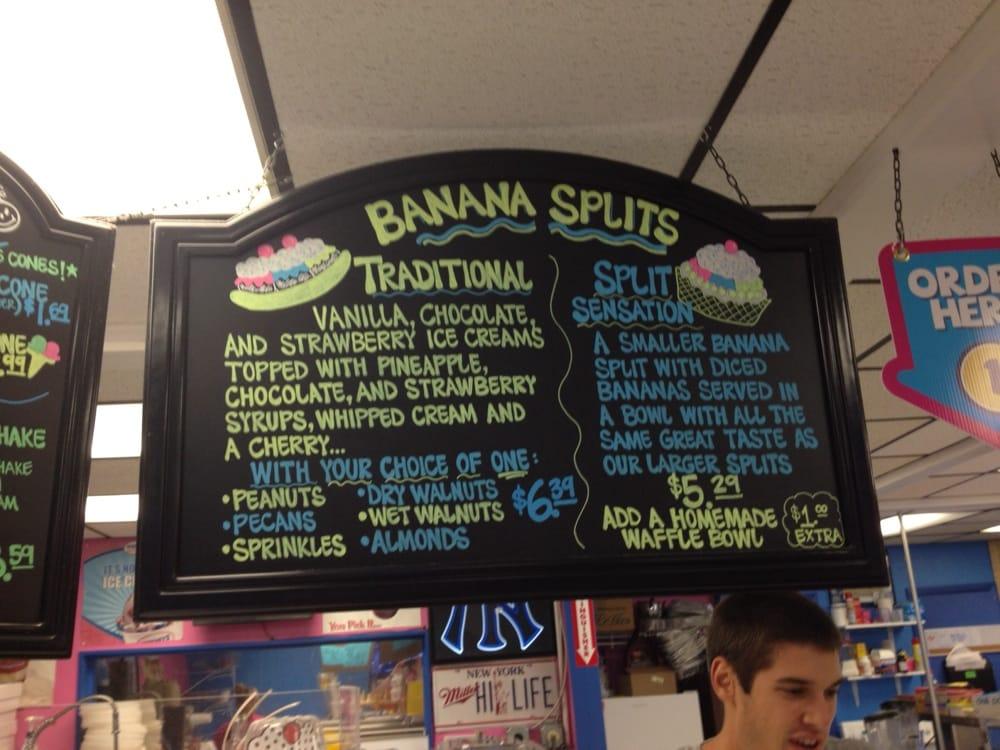 BANANA SPLITS
TRADITIONAL
VANILLA, CHOCOLATE,
AND STRAWBERRY ICE CREAMS
TOPPED WITH PINEAPPLE,
CHOCOLATE, AND STRAWBERRY
SYRUPS, WHIPPED CREAM AND
A CHERRY...
WITH YOUR CHOICE OF ONE:
•PEANUTS •DRY WALNUTS
•PECANS •WET WALNUTS
•SPRINKLES •ALMONDS
$6.39
SPLIT
SENSATION
A SMALLER BANANA
SPLIT WITH DICED
BANANAS SERVED IN
A BOWL WITH ALL THE
SAME GREAT TASTE AS
OUR LARGER SPLITS
$5.29
ADD A HOMEMADE
WAFFLE BOWL
$1.00
EXTRA
CONES!
CONE
$1.69
.99
HAKE
HAKE
.59
ORDE
HER
1
IT'S
ICE
You Pick It...
NY
NEW YORK
Miller HI LIFE